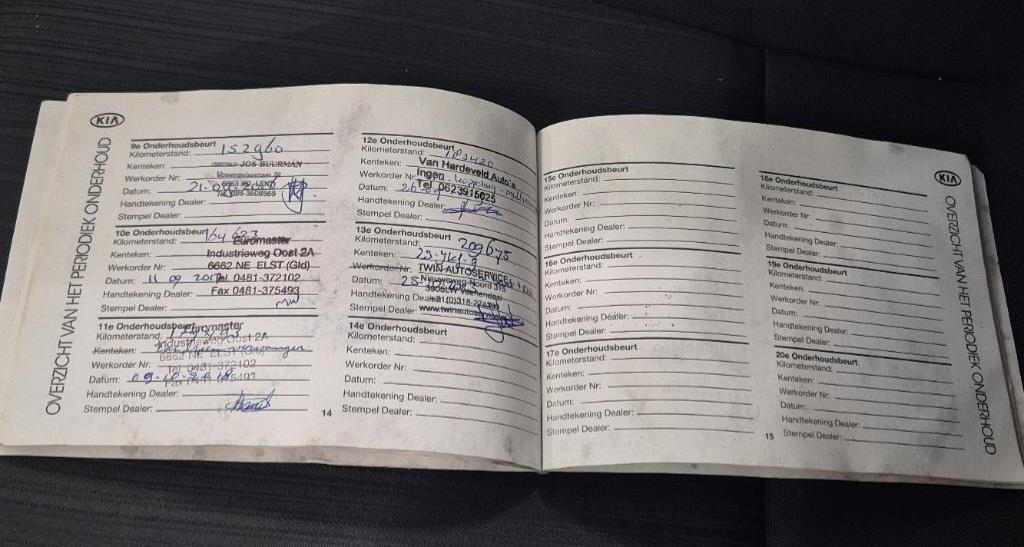 KIA
OVERZICHT VAN HET PERIODIEK ONDERHOUD
9e Onderhoudsbeurt
Kilometerstand: 152960
Kenteken: JOS BUURMAN
Werkorder Nr:
Datum: 21.
Handtekening Dealer:
Stempel Dealer:
10e Onderhoudsbeurt
Kilometerstand: 164623
Kenteken: Euromaster
Industrieweg Oost 2A
Werkorder Nr: 6662 NE ELST (Gld)
Datum: 11 09 Tel. 0481-372102
Handtekening Dealer: Fax 0481-375493
Stempel Dealer:
11e Onderhoudsbeurt Euromaster
Kilometerstand:
Industrieweg Oost 2A
Kenteken:
6662 NE ELST (Gld)
Werkorder Nr: Tel. 0481-372102
Datum: Fax 0481-375493
Handtekening Dealer:
Stempel Dealer:
14
12e Onderhoudsbeurt
Kilometerstand:
Kenteken: Van Hardeveld Auto's
Werkorder Nr: Ingen
Datum: Tel. 0623915025
Handtekening Dealer:
Stempel Dealer:
13e Onderhoudsbeurt
Kilometerstand: 209675
Kenteken:
Werkorder Nr: TWIN AUTOSERVICE
Datum:
Handtekening Dealer:
Stempel Dealer:
14e Onderhoudsbeurt
Kilometerstand:
Kenteken:
Werkorder Nr:
Datum:
Handtekening Dealer:
Stempel Dealer:
15e Onderhoudsbeurt
Kilometerstand:
Kenteken:
Werkorder Nr:
Datum:
Handtekening Dealer:
Stempel Dealer:
16e Onderhoudsbeurt
Kilometerstand:
Kenteken:
Werkorder Nr:
Datum:
Handtekening Dealer:
Stempel Dealer:
17e Onderhoudsbeurt
Kilometerstand:
Kenteken:
Werkorder Nr:
Datum:
Handtekening Dealer:
Stempel Dealer:
15
18e Onderhoudsbeurt
Kilometerstand:
Kenteken:
Werkorder Nr:
Datum:
Handtekening Dealer:
Stempel Dealer:
19e Onderhoudsbeurt
Kilometerstand:
Kenteken:
Werkorder Nr:
Datum:
Handtekening Dealer:
Stempel Dealer:
20e Onderhoudsbeurt
Kilometerstand:
Kenteken:
Werkorder Nr:
Datum:
Handtekening Dealer:
Stempel Dealer:
KIA
OVERZICHT VAN HET PERIODIEK ONDERHOUD